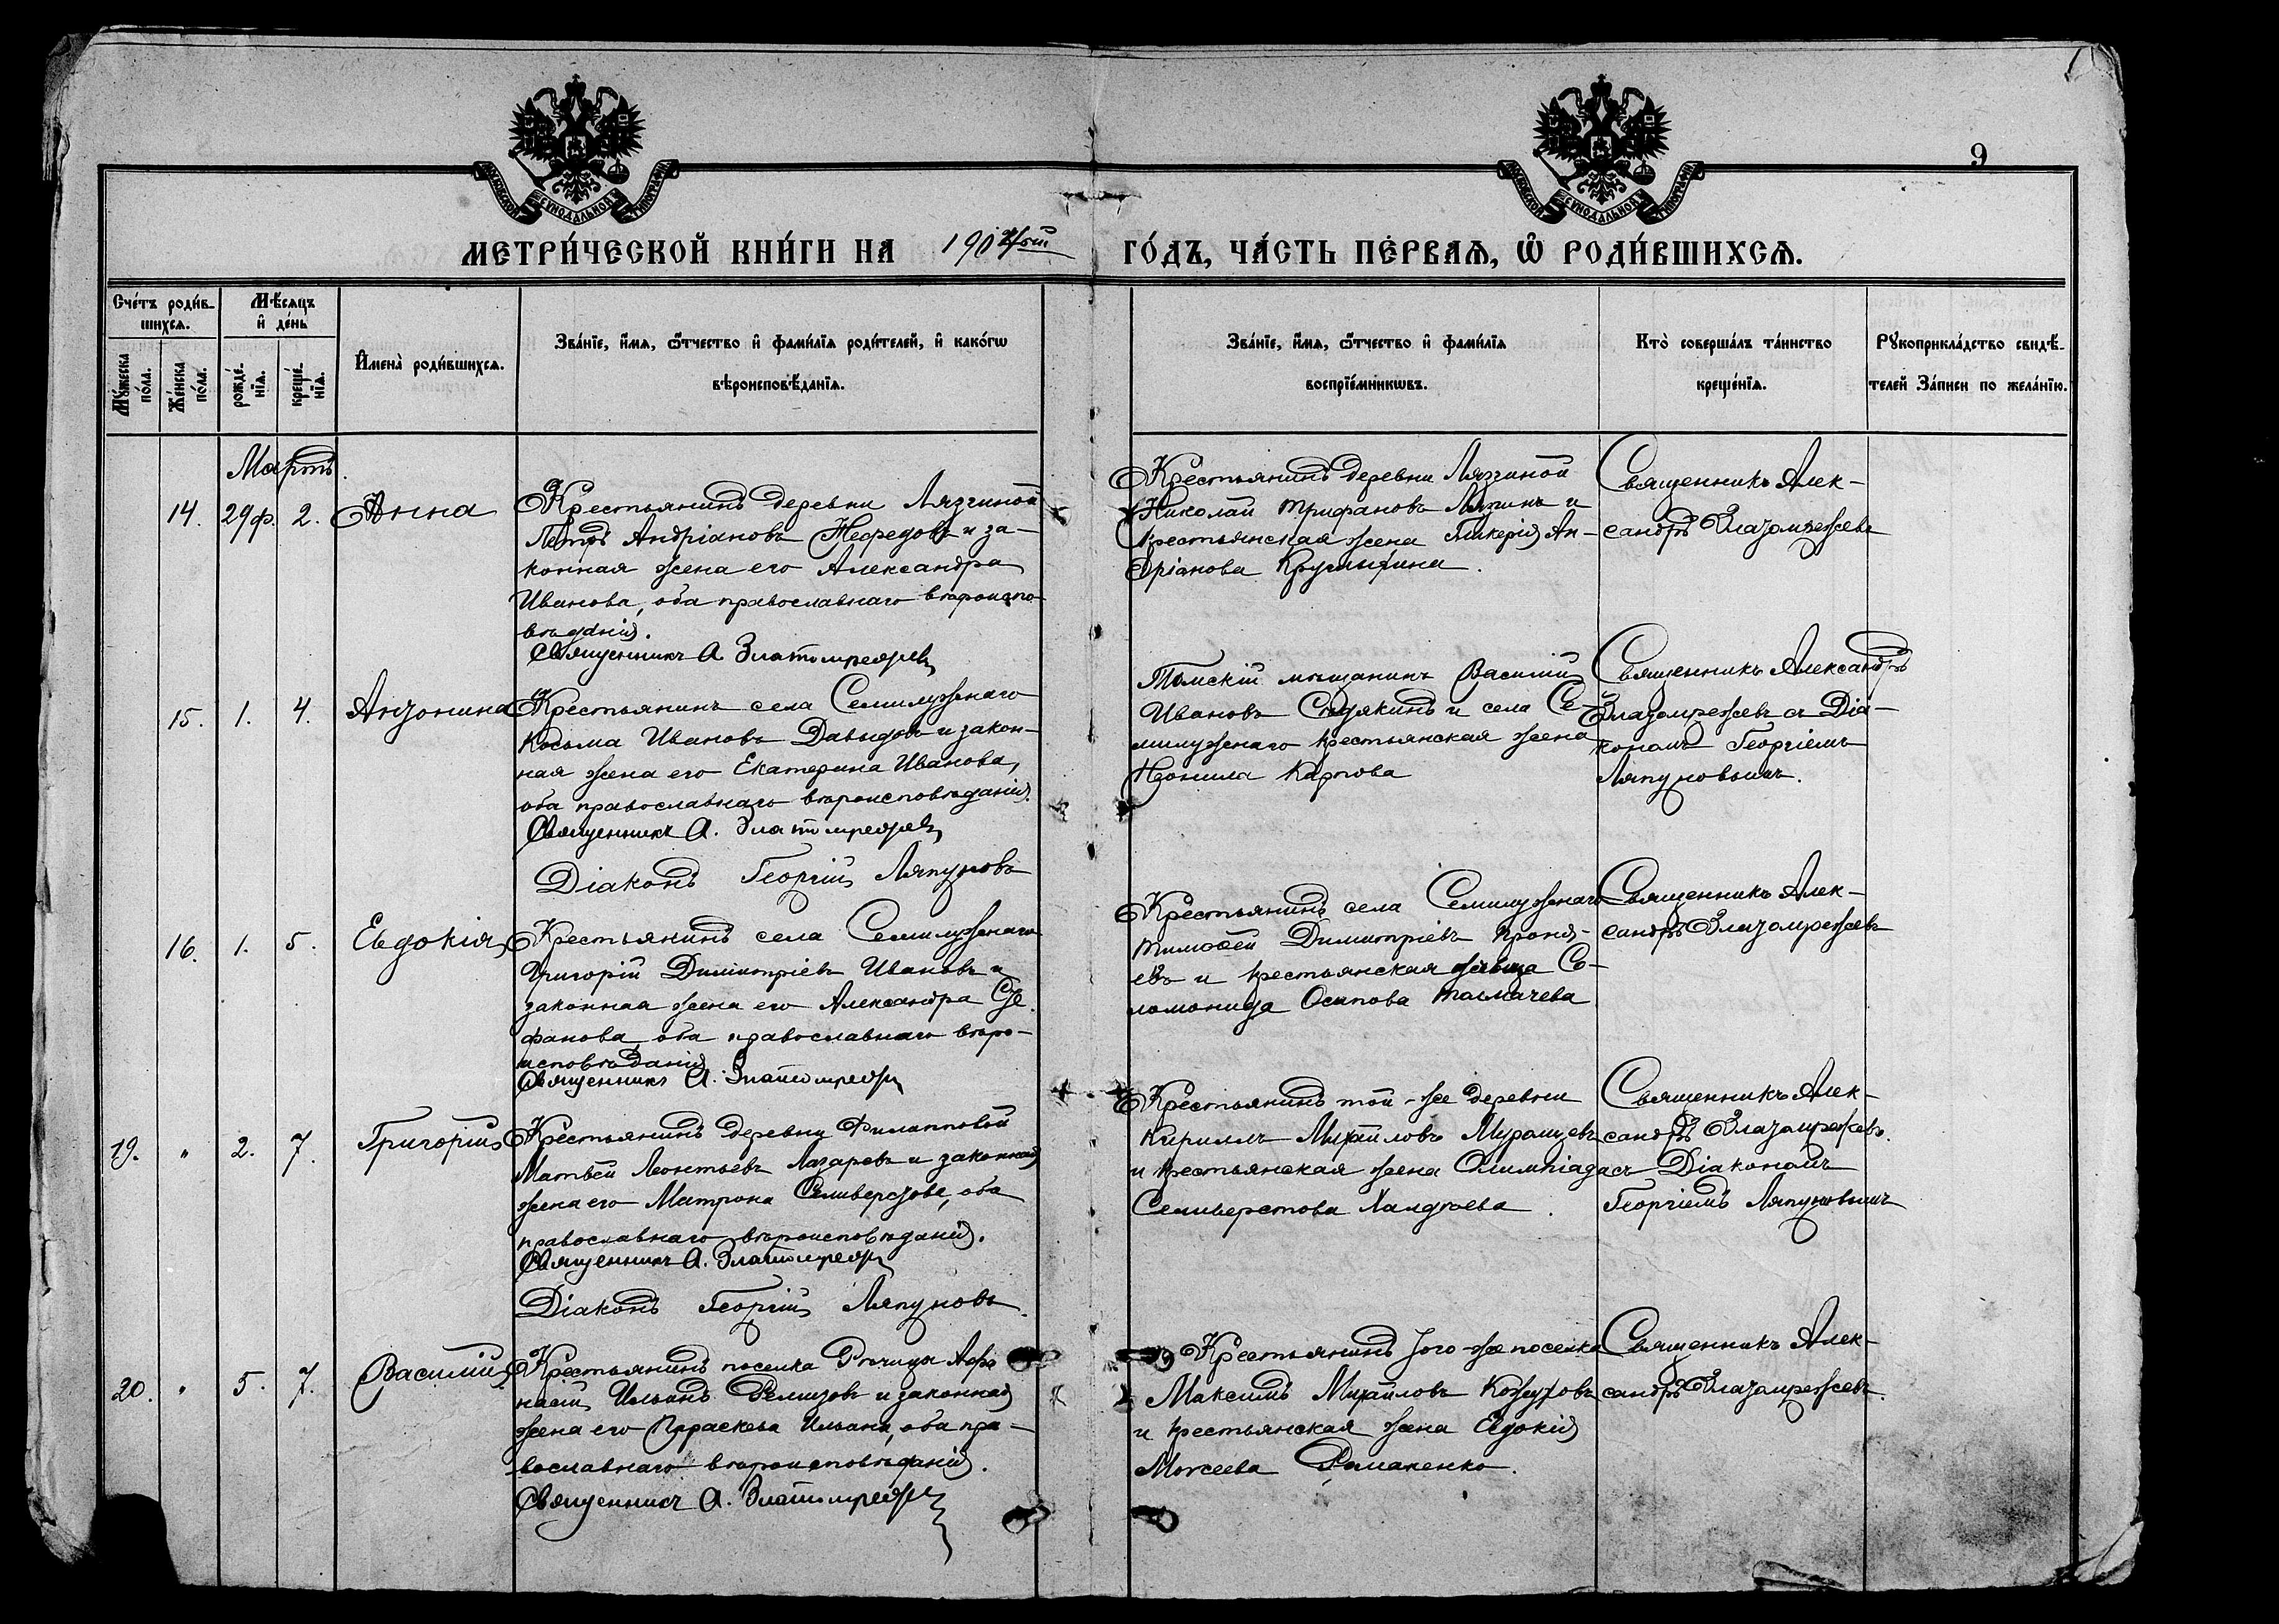 9
МЕТРИ́ЧЕСКОЙ КНИ́ГИ НА 1904ый ГО́ДЪ, ЧА́СТЬ ПЕ́РВАѦ, Ѡ҆ РОДИ́ВШИХСѦ.
Счéтъ роди́в-
шихсѧ.
Мꙋ́жеска по́ла.
Же́нска по́ла.
Мѣ́сяцъ
и҆ де́нь
рожде́-
нїѧ.
креще́-
нїѧ.
И҆мена̀ роди́вшихсѧ.
Зва́нїе, и҆́мѧ, ѻ҆́тчество и҆ фами́лїѧ роди́телей, и҆ како́гѡ
вѣроисповѣ́данїѧ.
Зва́нїе, и҆́мѧ, ѻ҆́тчество и҆ фами́лїѧ
воспрїе́мникѡвъ.
Кто̀ соверша́лъ та́инство
креще́нїѧ.
Рꙋкоприкла́дство свидѣ́-
телей За́писи по жела́нїю.
Мартъ.
14. 29ф. 2. Анна
Крестьянинъ деревни Лязгиной
Петръ Андріановъ Нефедовъ и за-
конная жена его Александра
Иванова, оба православнаго вѣроиспо-
вѣданія.
Священникъ А Златомрежев
Крестьянинъ деревни Лязгиной
Николай Трифановъ Лязгинъ и
крестьянская жена Гликерія Ан-
дріанова Круглыхина.
Священникъ Алек-
сандръ Златомрежевъ
15. 1. 4. Антонина
Крестьянинъ села Семилужнаго
Косьма Ивановъ Давыдовъ и закон-
ная жена его Екатерина Иванова,
оба православнаго вѣроисповѣданія.
Священникъ А. Златомрежев
Діаконъ Георгій Ляпуновъ
Томскій мѣщанинъ Василій
Ивановъ Сѣдякинъ и села Се-
милужнаго крестьянская жена
Неонила Карпова
Священникъ Александръ
Златомрежевъ съ Діа-
кономъ Георгіемъ
Ляпуновымъ.
16. 1. 5. Евдокія
Крестьянинъ села Семилужнаго
Григорій Димитріевъ Ивановъ и
законная жена его Александра Сте-
фанова, оба православнаго вѣро-
исповѣданія
Священникъ А. Златомреж
Крестьянинъ села Семилужнаго
Тимофей Димитріевъ
евъ и крестьянская дѣвица Со-
ломонида Осипова Толмачева
Священникъ Алек-
сандръ Златомрежевъ
19. " 2. 7. Григорій
Крестьянинъ деревни Филипповой
Матвѣй Леонтьевъ Лазаревъ и законная
жена его Матрона Селиверстова, оба
православнаго вѣроисповѣданія.
Священникъ А. Златомреж
Діаконъ Георгій Ляпуновъ.
Крестьянинъ той-же деревни
Кириллъ Михайловъ Мурашевъ
и крестьянская жена Олимпіада
Селиверстова Халдѣева.
Священникъ Алек-
сандръ Златомрежевъ.
съ Діакономъ
Георгіемъ Ляпуновымъ
20. " 5. 7. Василій
Крестьянинъ поселка Рѣчица Афа-
насій Ильинъ и законная
жена его Параскева Ильина, оба пра-
вославнаго вѣроисповѣданія.
Священникъ А. Златомреж
Крестьянинъ того-же поселка
Максимъ Михайловъ Кожуховъ
и крестьянская жена Евдокія
Моисеева Романенко.
Священникъ Алек-
сандръ Златомрежевъ.